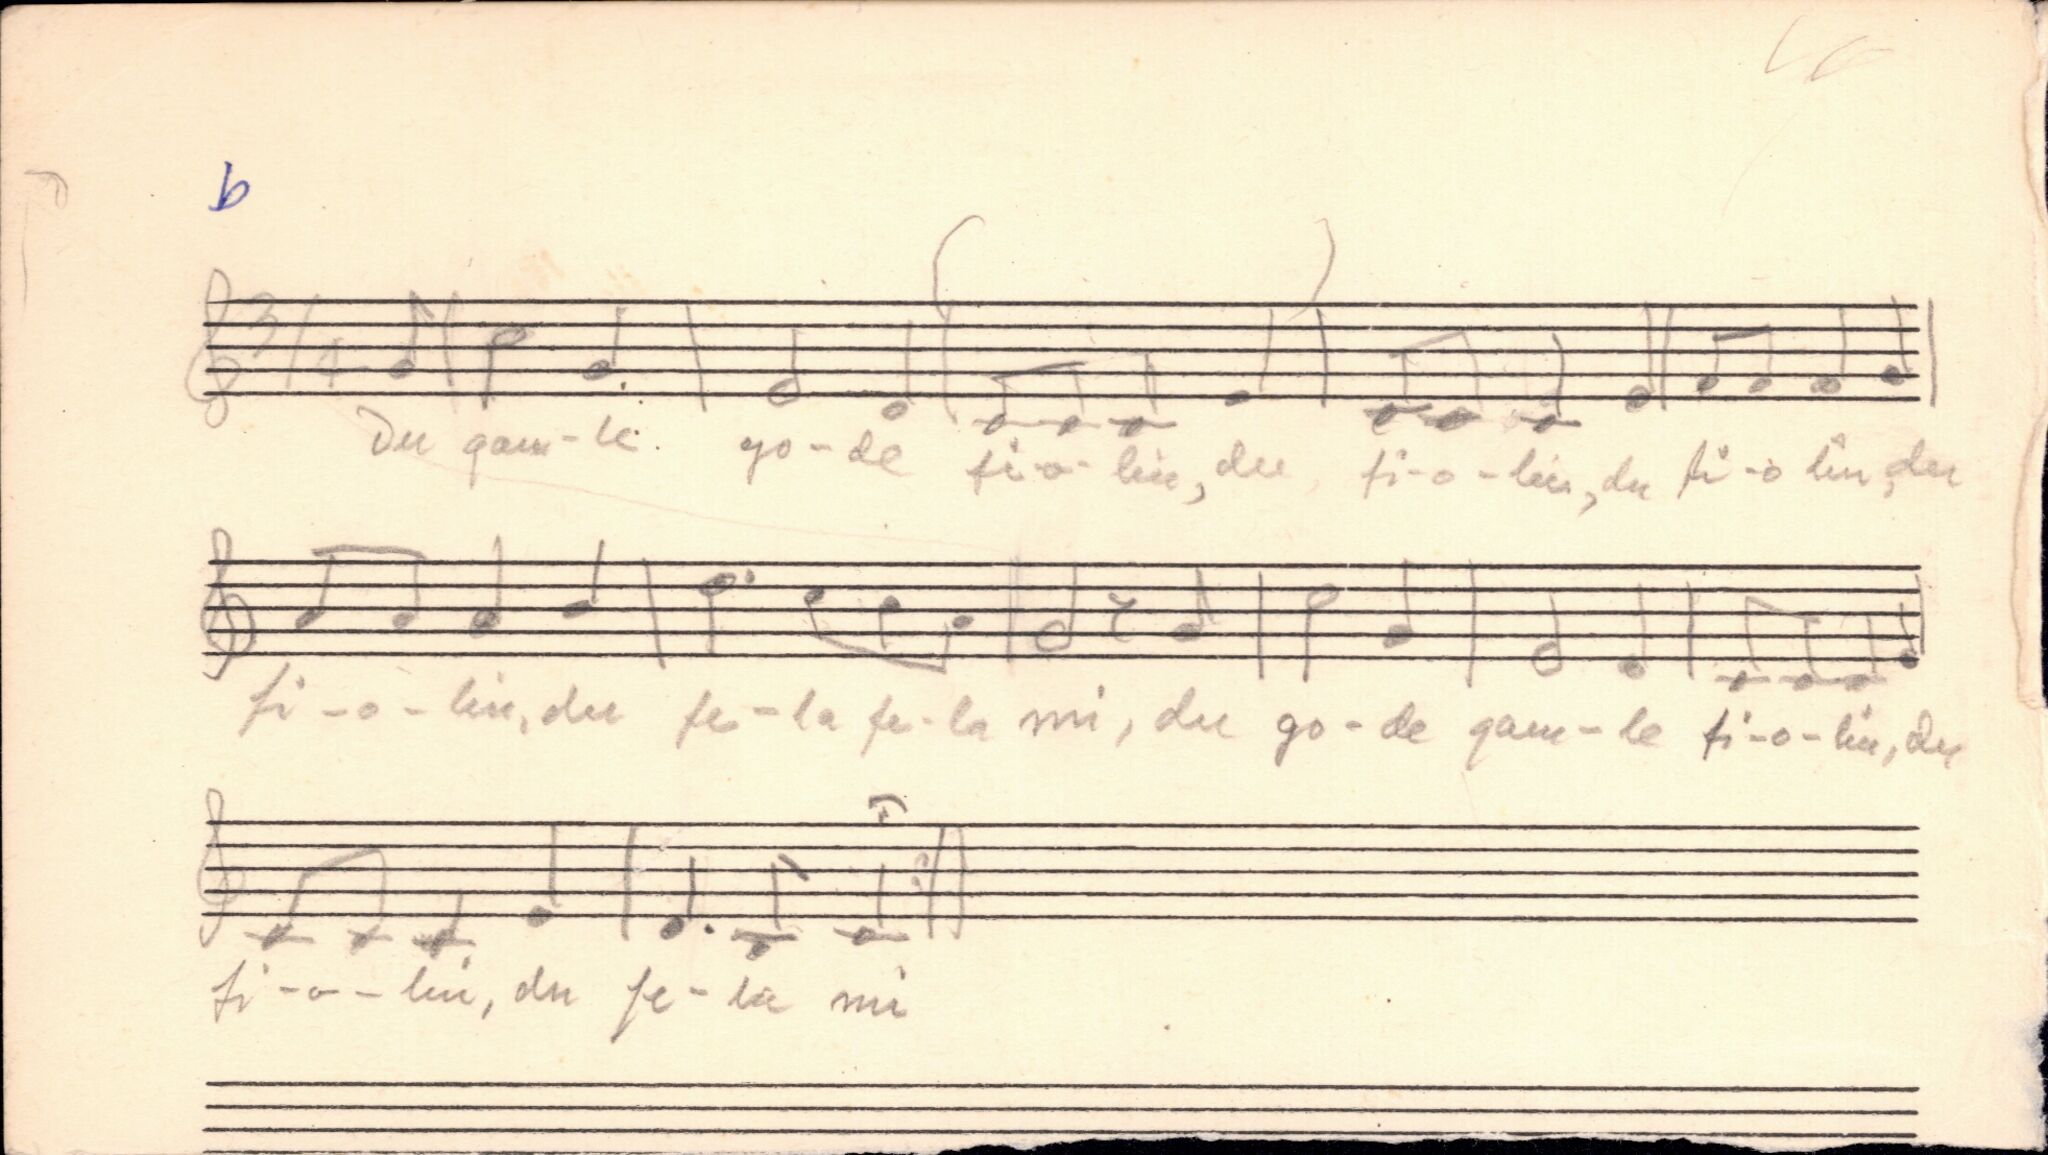 b
3/4
Du gam-le. go-de fi-o-lin, du fi-o-lin, du fi-o lin, du
fi-o-lin, du fe-la fe-la mi, du go-de gam-le fi-o-lin, du
fi-o-lin, du fe-la mi